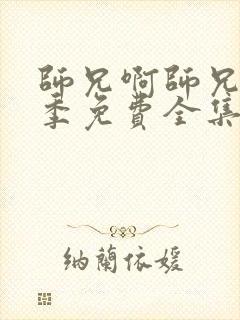 師兄啊師兄
季免費全集
納蘭依媛